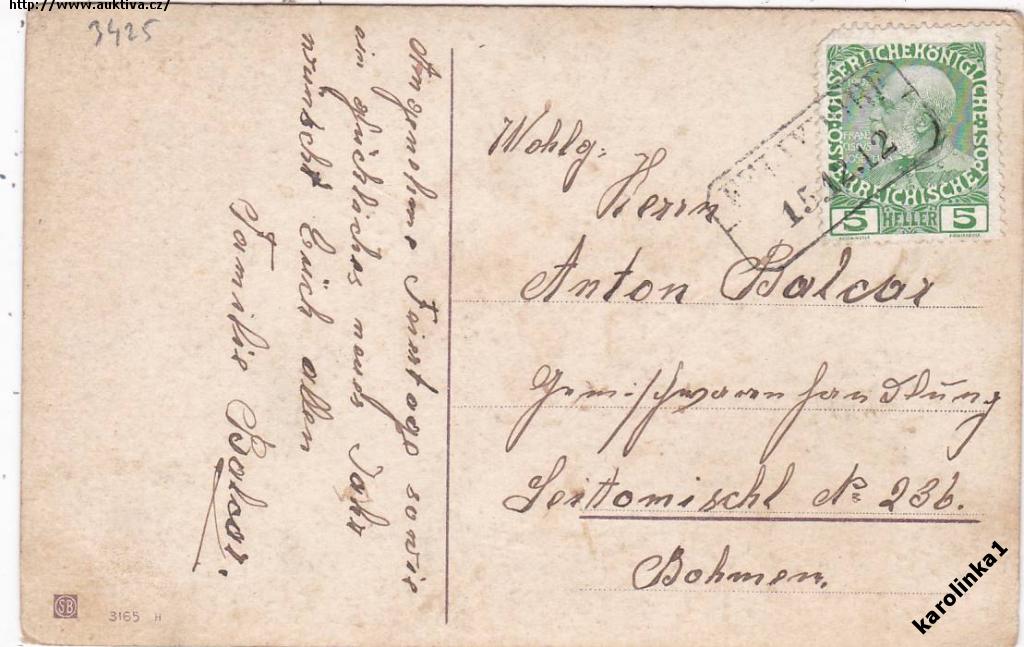 http://www.auktiva.cz/
3425
Angenehme Feiertage sowie
ein glückliches neues Jahr
wünscht Euch allen
Familie Balcar.
Wohlg. Herrn
Anton Balcar
Gemischwarenhandlung
Leittomischl No 236.
Böhmen.
KAISERLICHE KÖNIGLICHE ÖSTERREICHISCHE
5 HELLER 5
15.12.12
SB
3165 H
karolinka1